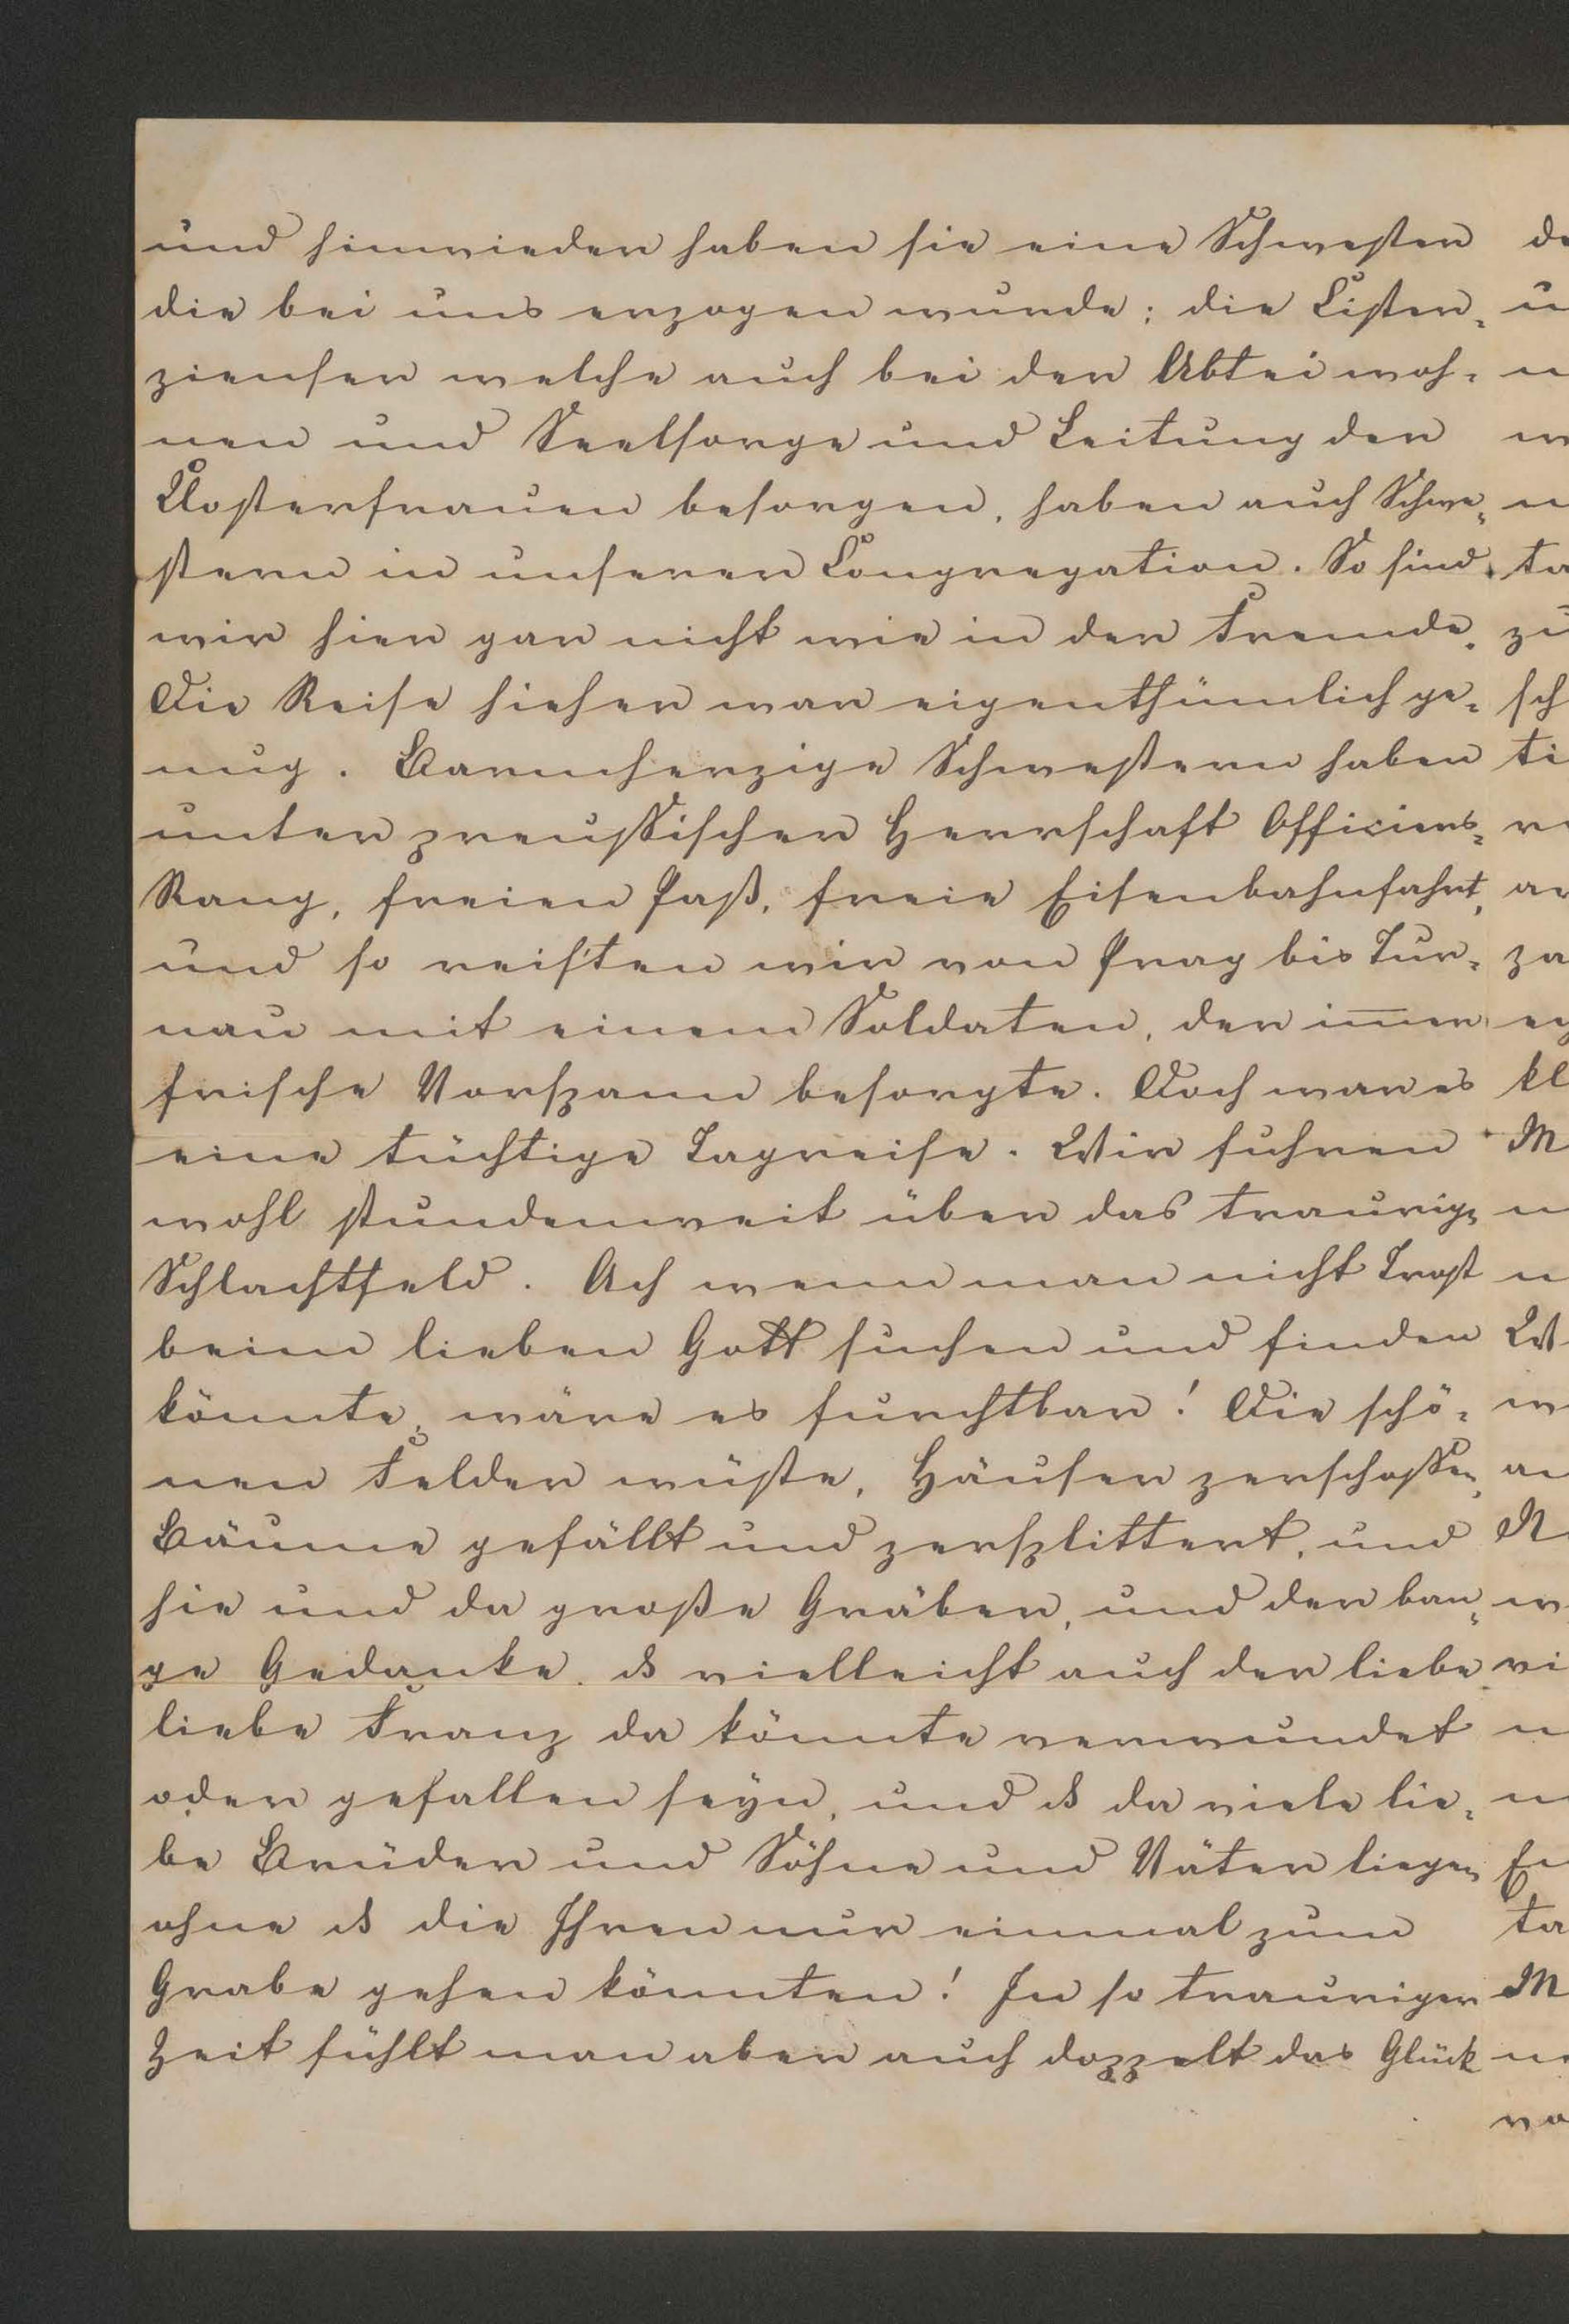 und hinwieder haben sie eine Schwester
die bei uns erzogen wurde; die Cister„
zienser welche auch bei der Abtei woh„
nen und Seelsorge und Leitung der
Klosterfrauen besorgen, haben auch Schwe„
stern in unserer Congregation. So sind
wir hier gar nicht wie in der Fremde.
Die Reise hieher war eigenthümlich ge„
nug. Barmherzige Schwestern haben
unter preussischer Herrschaft Officiers„
Rang, freien Paß, freie Eisenbahnfahrt,
und so reis'ten wir von Prag bis Tur„
nau mit einem Soldaten, der im̅er
frische Vorspann besorgte. Doch war es
eine tüchtige Tagreise. Wir fuhren
wohl stundenweit über das traurige
Schlachtfeld. Ach wenn man nicht Trost
beim lieben Gott suchen und finden
könnte, wäre es furchtbar! Die schö„
nen Felder wüste, Häuser zerschossen,
Bäume gefällt und zersplittert, und
hie und da große Gräber, und der ban„
ge Gedanke, ds vielleicht auch der liebe
liebe Franz da könnte verwundet
oder gefallen seyn, und ds da viele lie„
be Brüder und Söhne und Väter liegen
ohne ds die Ihren nur einmal zum
Grabe gehen könnten! In so trauriger
Zeit fühlt man aber auch doppelt das Glück